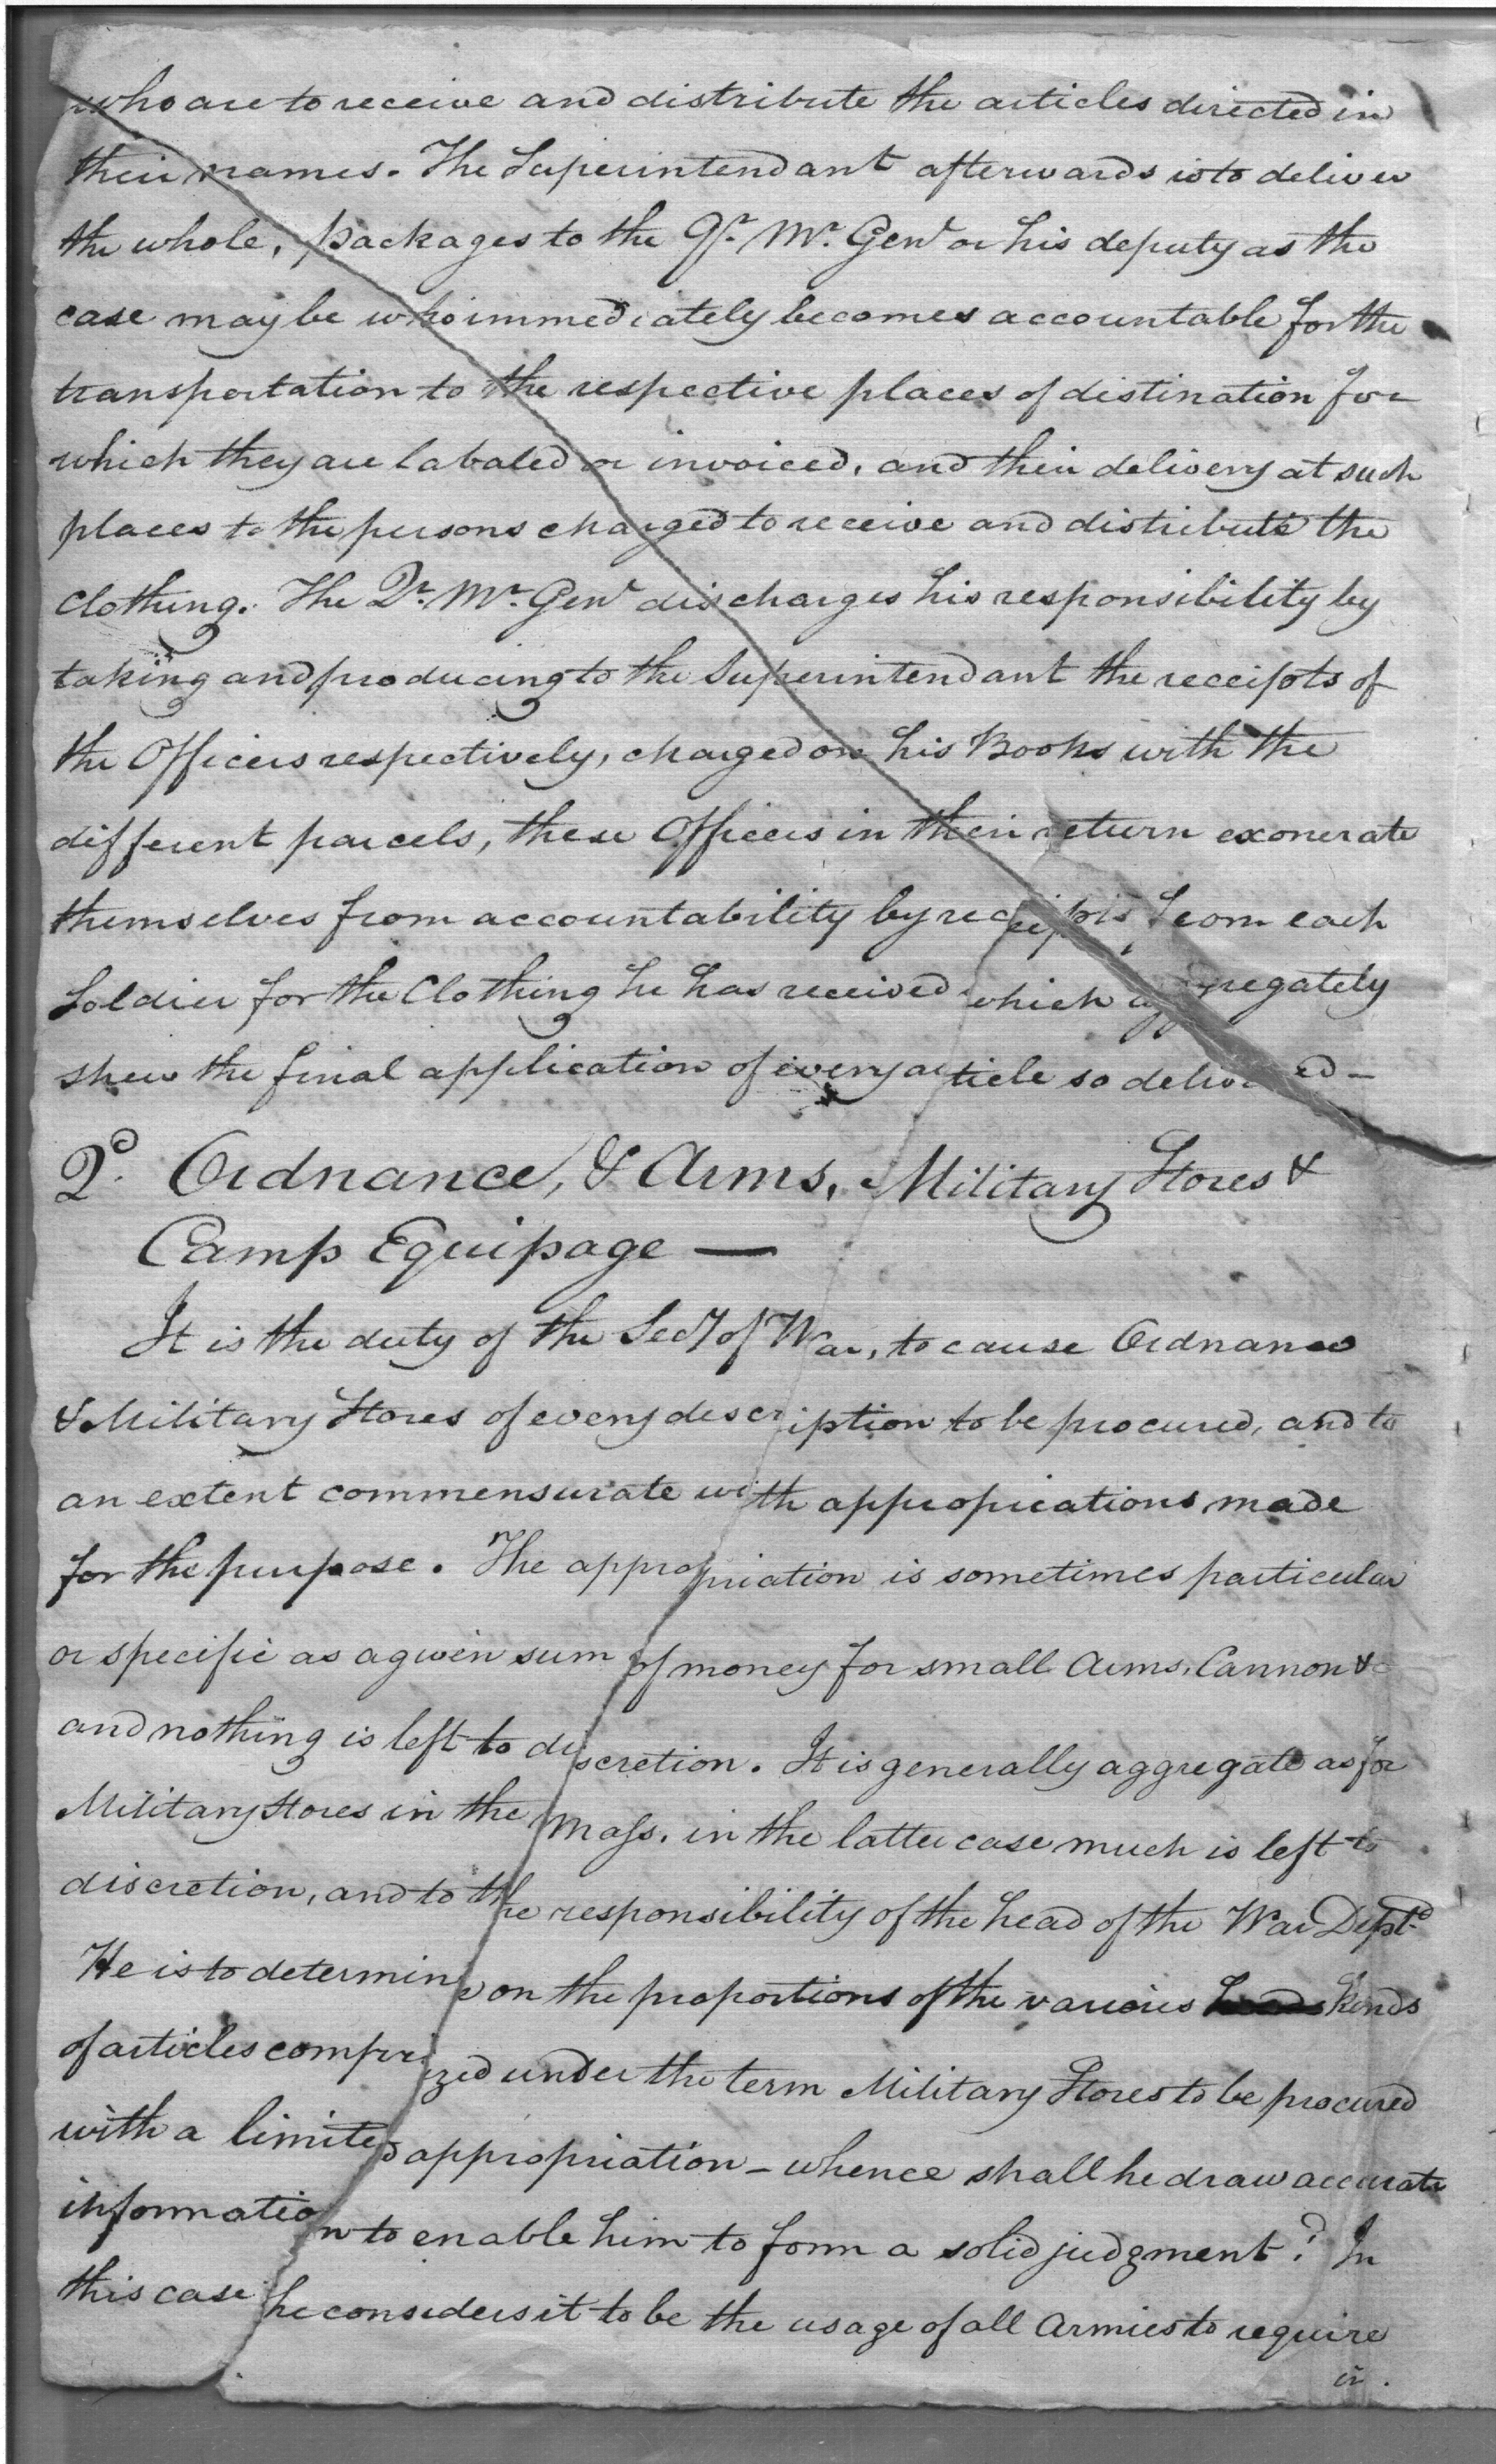 who are to receive and distribute the articles directed in
their names. The Superintendant afterwards is to deliver
the whole, packages to the Qr. Mr. Genl or his deputy as the
case may be who immediately becomes accountable for the
transportation to the respective places of distination for
which they are labaled or invoiced, and their delivery at such
places to the persons charged to receive and distribute the
Clothing. The Qr. Mr. Genl discharges his responsibility by
taking and producing to the Superintendant the receipts of
the Officers respectively, charged on his Books with the
different parcels, these Officers in their return exonerate
themselves from accountability by receipts from each
Soldier for the Clothing he has received which aggregately
shew the final application of every article so delivered —
2d. Ordnance, & Arms, Military Stores &
Camp Equipage —
It is the duty of the Secy of War, to cause Ordnance
& Military Stores of every description to be procured, and to
an extent commensurate with appropriations made
for the purpose. The appropriation is sometimes particular
or specific as a given sum of money for small Arms, Cannon &c
and nothing is left to discretion. It is generally aggregate as for
Military Stores in the Mass. in the latter case much is left to
discretion, and to the responsibility of the head of the War Dept.
He is to determine on the proportions of the various kinds
of articles comprized under the term Military Stores to be procured
with a limited appropriation — whence shall he draw accurate
information to enable him to form a solid judgment? In
this case he considers it to be the usage of all Armies to require
in.